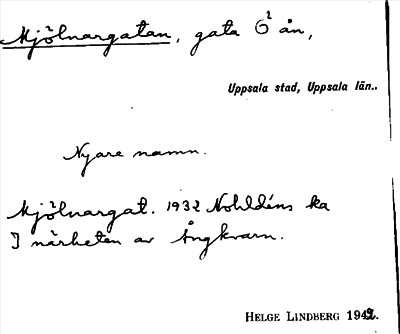 Mjölnargatan, gata Ö ån,
Uppsala stad, Uppsala län..
Nyare namn.
Mjölnargat. 1932 Nohldéns ka
I närheten av Ångkvarn.
HELGE LINDBERG 1942.